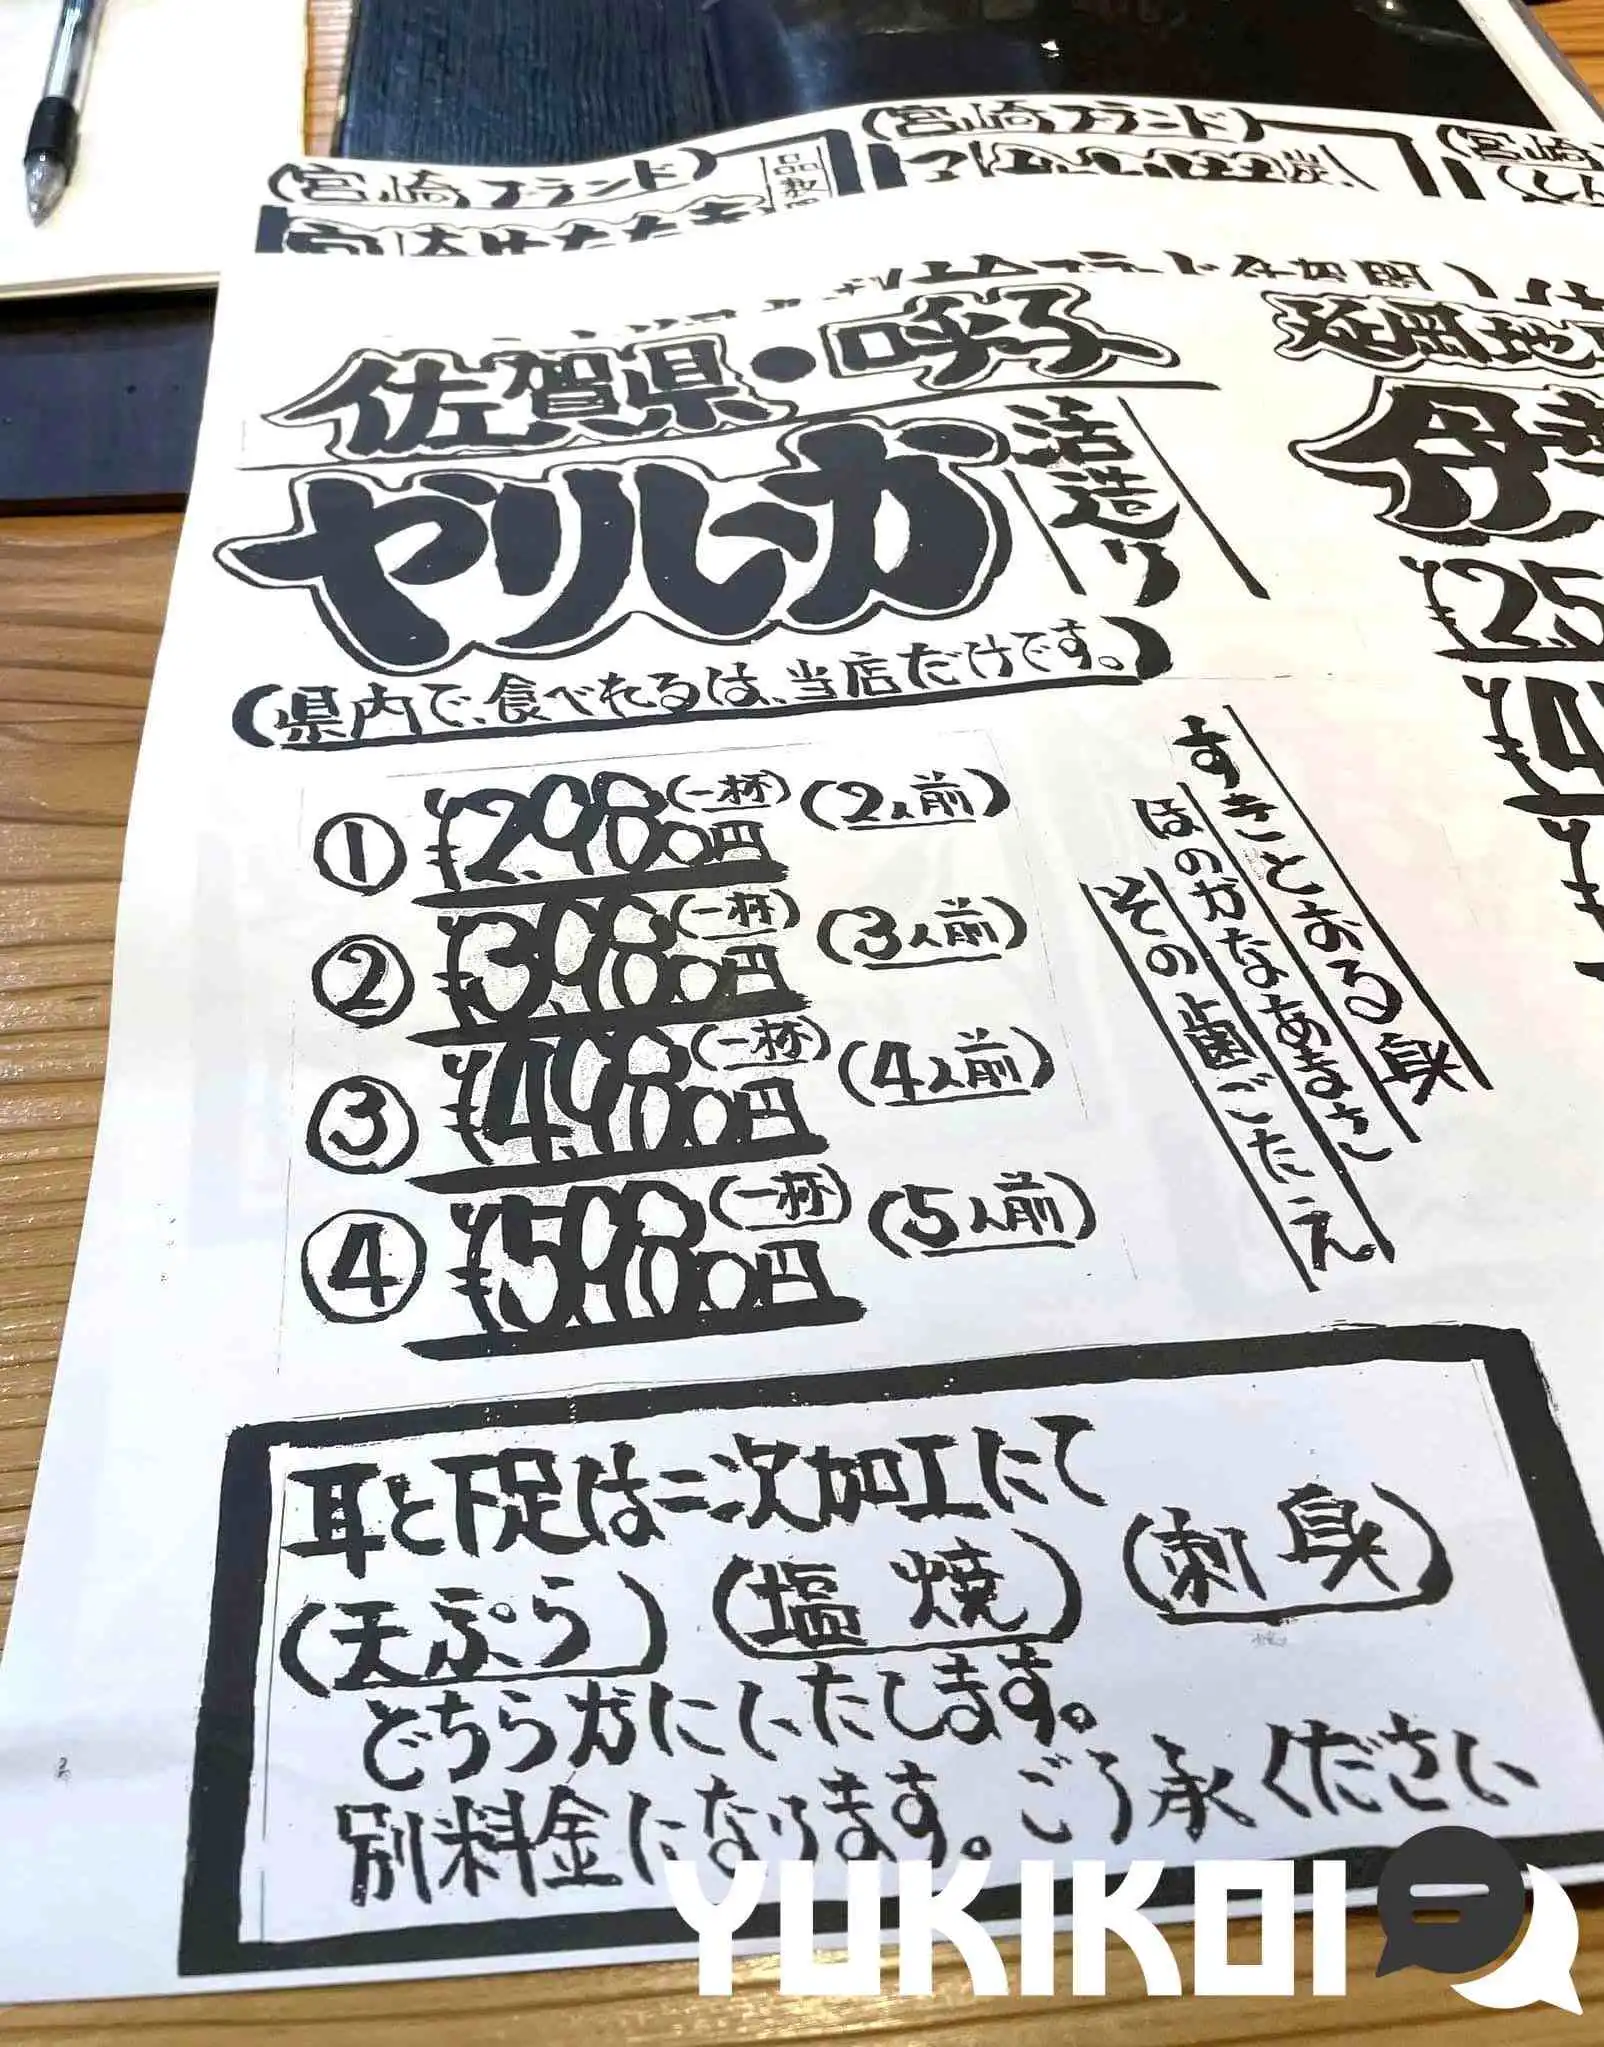 (宮崎ブランド)
(宮崎ブランド)
(宮崎
佐賀県・呼子
ヤリイカ
活造り
(県内で、食べれるは、当店だけです。)
① ¥2,980円 (一杯) (2人前)
② ¥3,980円 (一杯) (3人前)
③ ¥4,980円 (一杯) (4人前)
④ ¥5,980円 (一杯) (5人前)
すきとおる身
ほのかなあまさ
その歯ごたえ
延岡地
¥2,5
¥4
耳と下足は二次加工にて
(天ぷら) (塩焼) (刺身)
どちらかにいたします。
別料金になります。ごう承ください
YUKIKOI